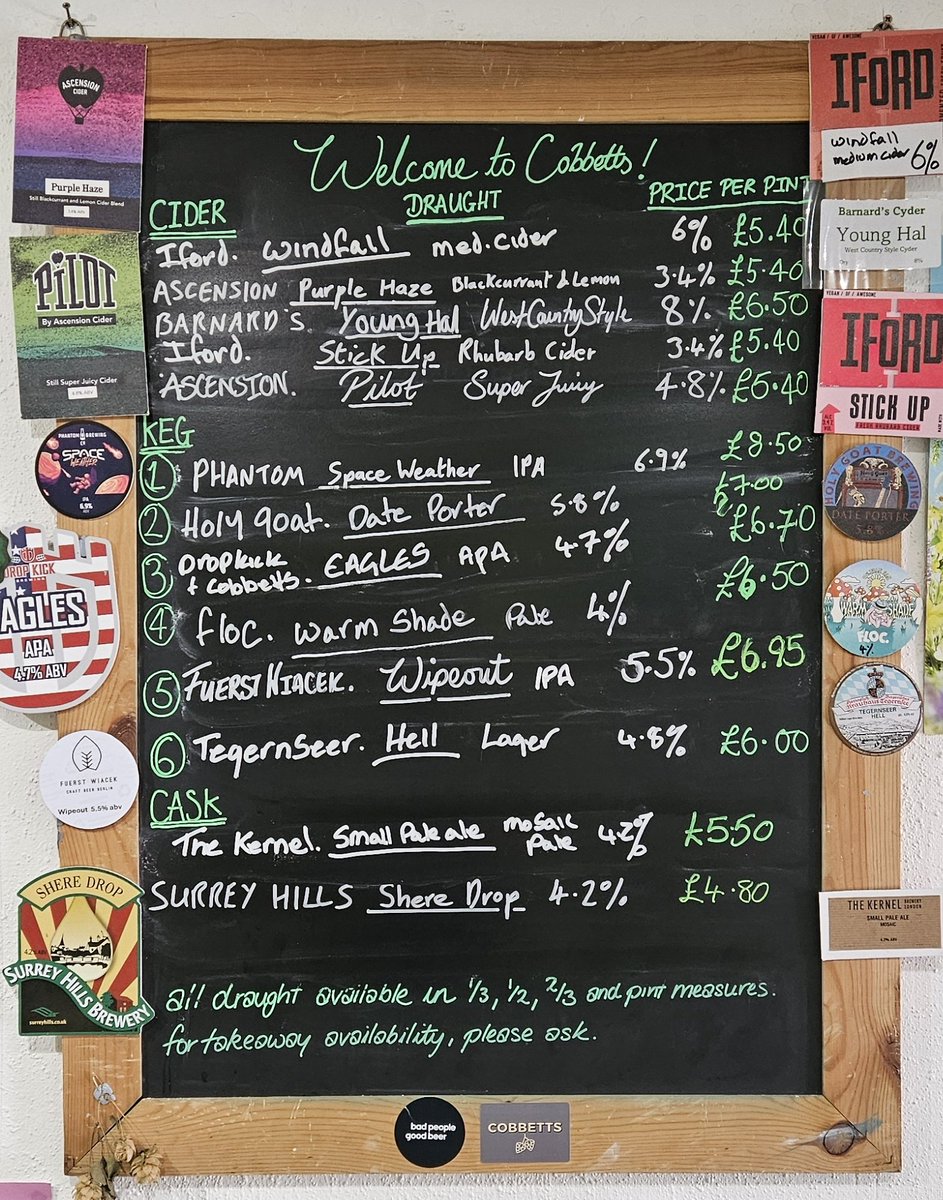 Welcome to Cobbetts!
DRAUGHT
PRICE PER PINT
CIDER
Iford. Windfall med.cider 6% £5.40
ASCENSION Purple Haze Blackcurrant & Lemon 3.4% £5.40
BARNARD'S Young Hal West Country Style 8% £6.50
Iford. Stick Up Rhubarb Cider 3.4% £5.40
ASCENSION. Pilot Super Juicy 4.8% £5.40
KEG
1 PHANTOM Space Weather IPA 6.9% £8.50
2 Holy Goat. Date Porter 5.8% £7.00
3 Dropkick + Cobbetts. EAGLES APA 4.7% £6.70
4 floc. Warm Shade Pale 4% £6.50
5 FUERST WIACEK. Wipeout IPA 5.5% £6.95
6 Tegernseer. Hell Lager 4.8% £6.00
CASK
The Kernel. Small Pale ale mosaic Pale 4.2% £5.50
SURREY HILLS Shere Drop 4.2% £4.80
all draught available in 1/3, 1/2, 2/3 and pint measures.
for takeaway availability, please ask.
bad people
good beer
COBBETTS
ASCENSION
CIDER
Purple Haze
Still Blackcurrant and Lemon Cider Blend
3.4% ABV
PILOT
By Ascension Cider
Still Super Juicy Cider
4.8% ABV
PHANTOM BREWING
SPACE
WEATHER
IPA
6.9%
DROP KICK
EAGLES
APA
4.7% ABV
FUERST WIACEK
CRAFT BEER BERLIN
Wipeout 5.5% abv
SHERE DROP
4.2% ABV
SURREY HILLS BREWERY
surreyhills.co.uk
VEGAN / OF / AWESOME
IFORD
windfall
medium cider 6%
Barnard's Cyder
Young Hal
West Country Style Cyder
Dry 8%
VEGAN / OF / AWESOME
IFORD
STICK UP
FRESH RHUBARB CIDER
HOLY GOAT BREWING
DATE PORTER
5.8%
WARM SHADE
FLOC.
4%
TEGERNSEER
HELL
THE KERNEL BREWERY LONDON
SMALL PALE ALE
MOSAIC
4.2% ABV